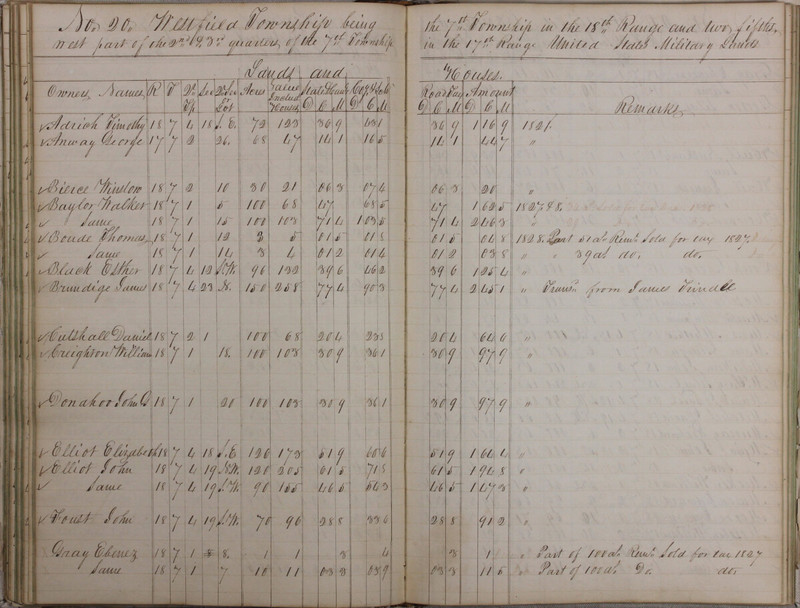 No. 20. Westfield Township being the 7th Township in the 18th Range and two fifths,
west part of the 2nd & 3rd quarters, of the 7th Township in the 17th Range United States Military Lands
Lands and Houses.
Owners Names, R T Acres State Road Tax Amount Remarks
Adrich Timothy 18 7 4 18 S.E. 72 123 369 431 369 1169 1821.
Anway George 17 7 2 26. 68 47 141 165 141 447 "
Bierce Winslow 18 7 2 10 30 21 063 074 063 20 "
Baylor Walker 18 7 1 5 100 68 47 685 47 1625 1827 & 8.
Same 18 7 1 15 100 103 714 1035 714 2463 "
Boude Thomas 18 7 1 12 2 5 015 018 015 048 1828. Part 51as Remr Sold for tax 1827.
Same 18 7 1 14 3 4 012 014 012 038 " " 39as do. do.
Black Esther 18 7 4 12 S.W. 96 132 396 462 396 1254 "
Brundige James 18 7 4 23 150 258 774 903 774 2451 " Transr. from James Trindle
Cutshall Daniel 18 7 2 1 100 68 204 238 204 646 "
Creighton William 18 7 1 18. 100 103 309 361 309 979 "
Donahoo John 18 7 1 20 100 103 309 361 309 979 "
Elliot Elizabeth 18 7 4 18 S.E 120 173 519 606 519 1644 "
Elliot John 18 7 4 19 120 205 615 718 615 1948 "
Same 18 7 4 19 S.W. 90 155 465 543 465 1473 "
Foust John 18 7 4 19 70 96 288 336 288 912 "
Gray Ebenez 18 7 1 8. 1 1 3 4 3 1 " Part of 100as Remr Sold for tax 1827
Same 18 7 1 7 10 11 033 039 033 115 " Part of 100as Do. do.